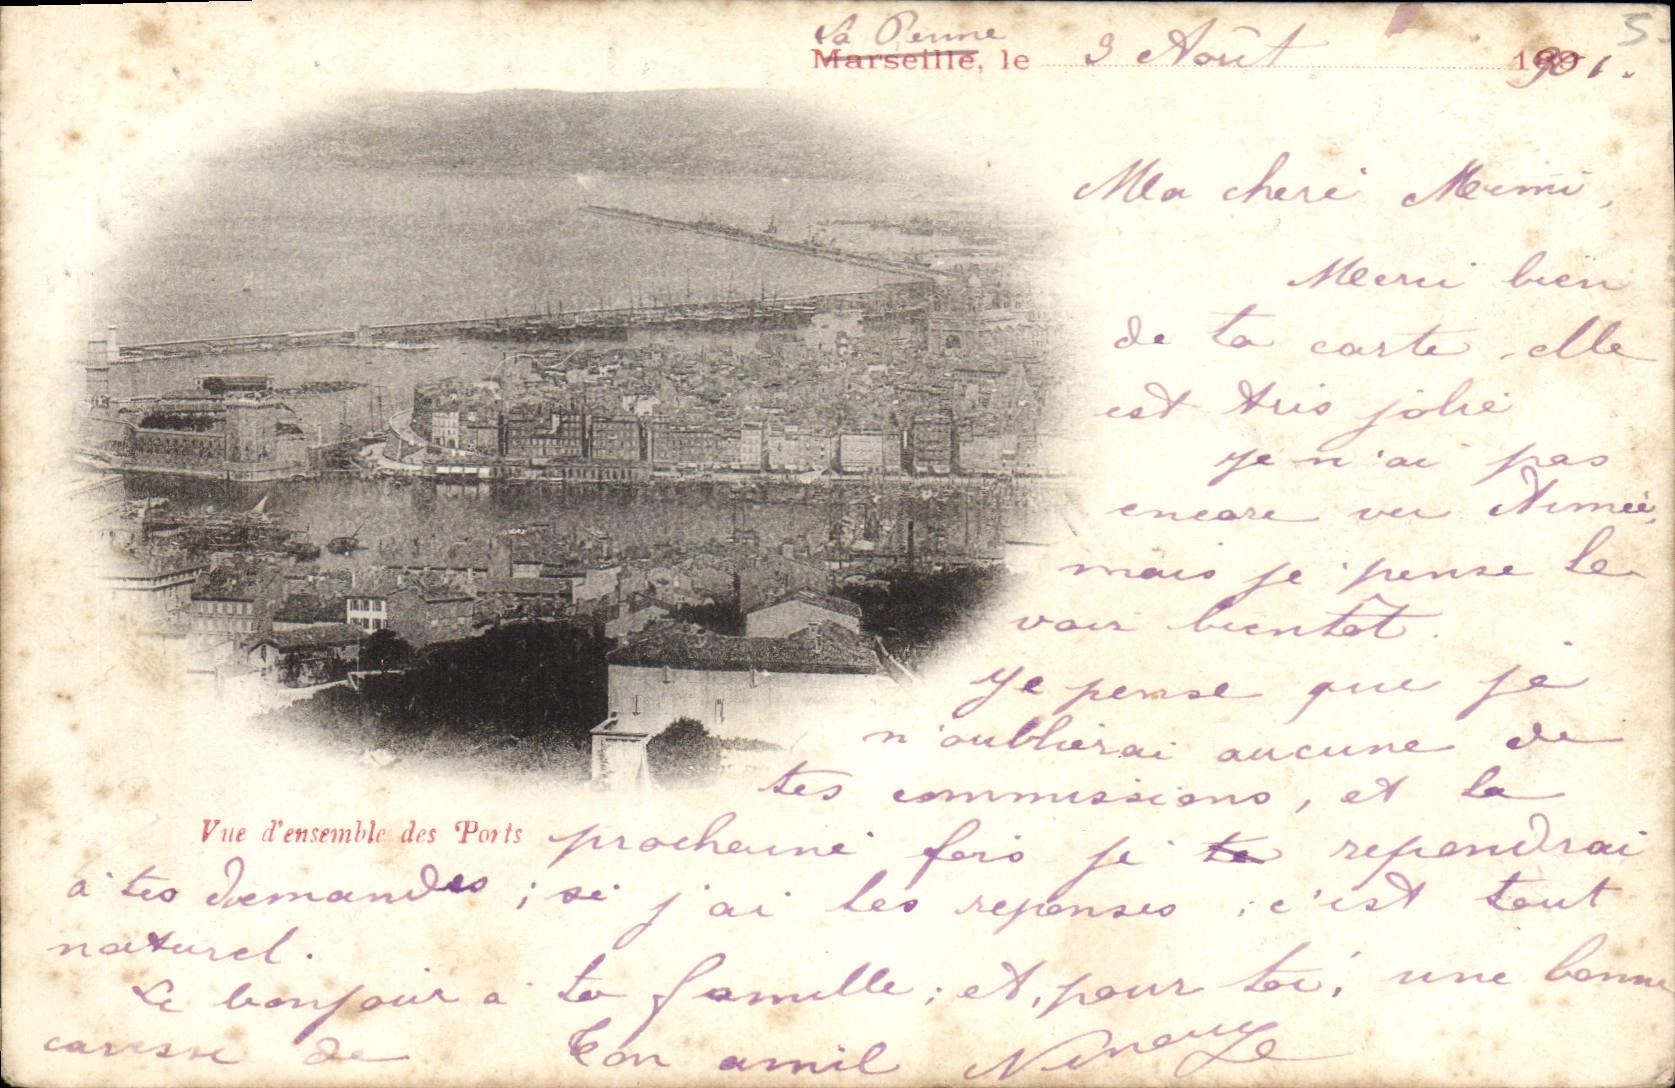 La Penne
Marseille, le 9 Août 1901.
5.
Ma cheré Mimi,
Merci bien
de ta carte, elle
est très jolie
Je n'ai pas
encore vu Aimée,
mais je pense le
voir bientôt.
Je pense que je
n'oublierai aucune de
tes commissions, et la
Vue d'ensemble des Ports
prochaine fois je te repondrai
à tes demandes ; si j'ai les reponses ; c'est tout
naturel.
Le bonjour à ta famille ; et, pour toi, une bonne
caresse de ton amie